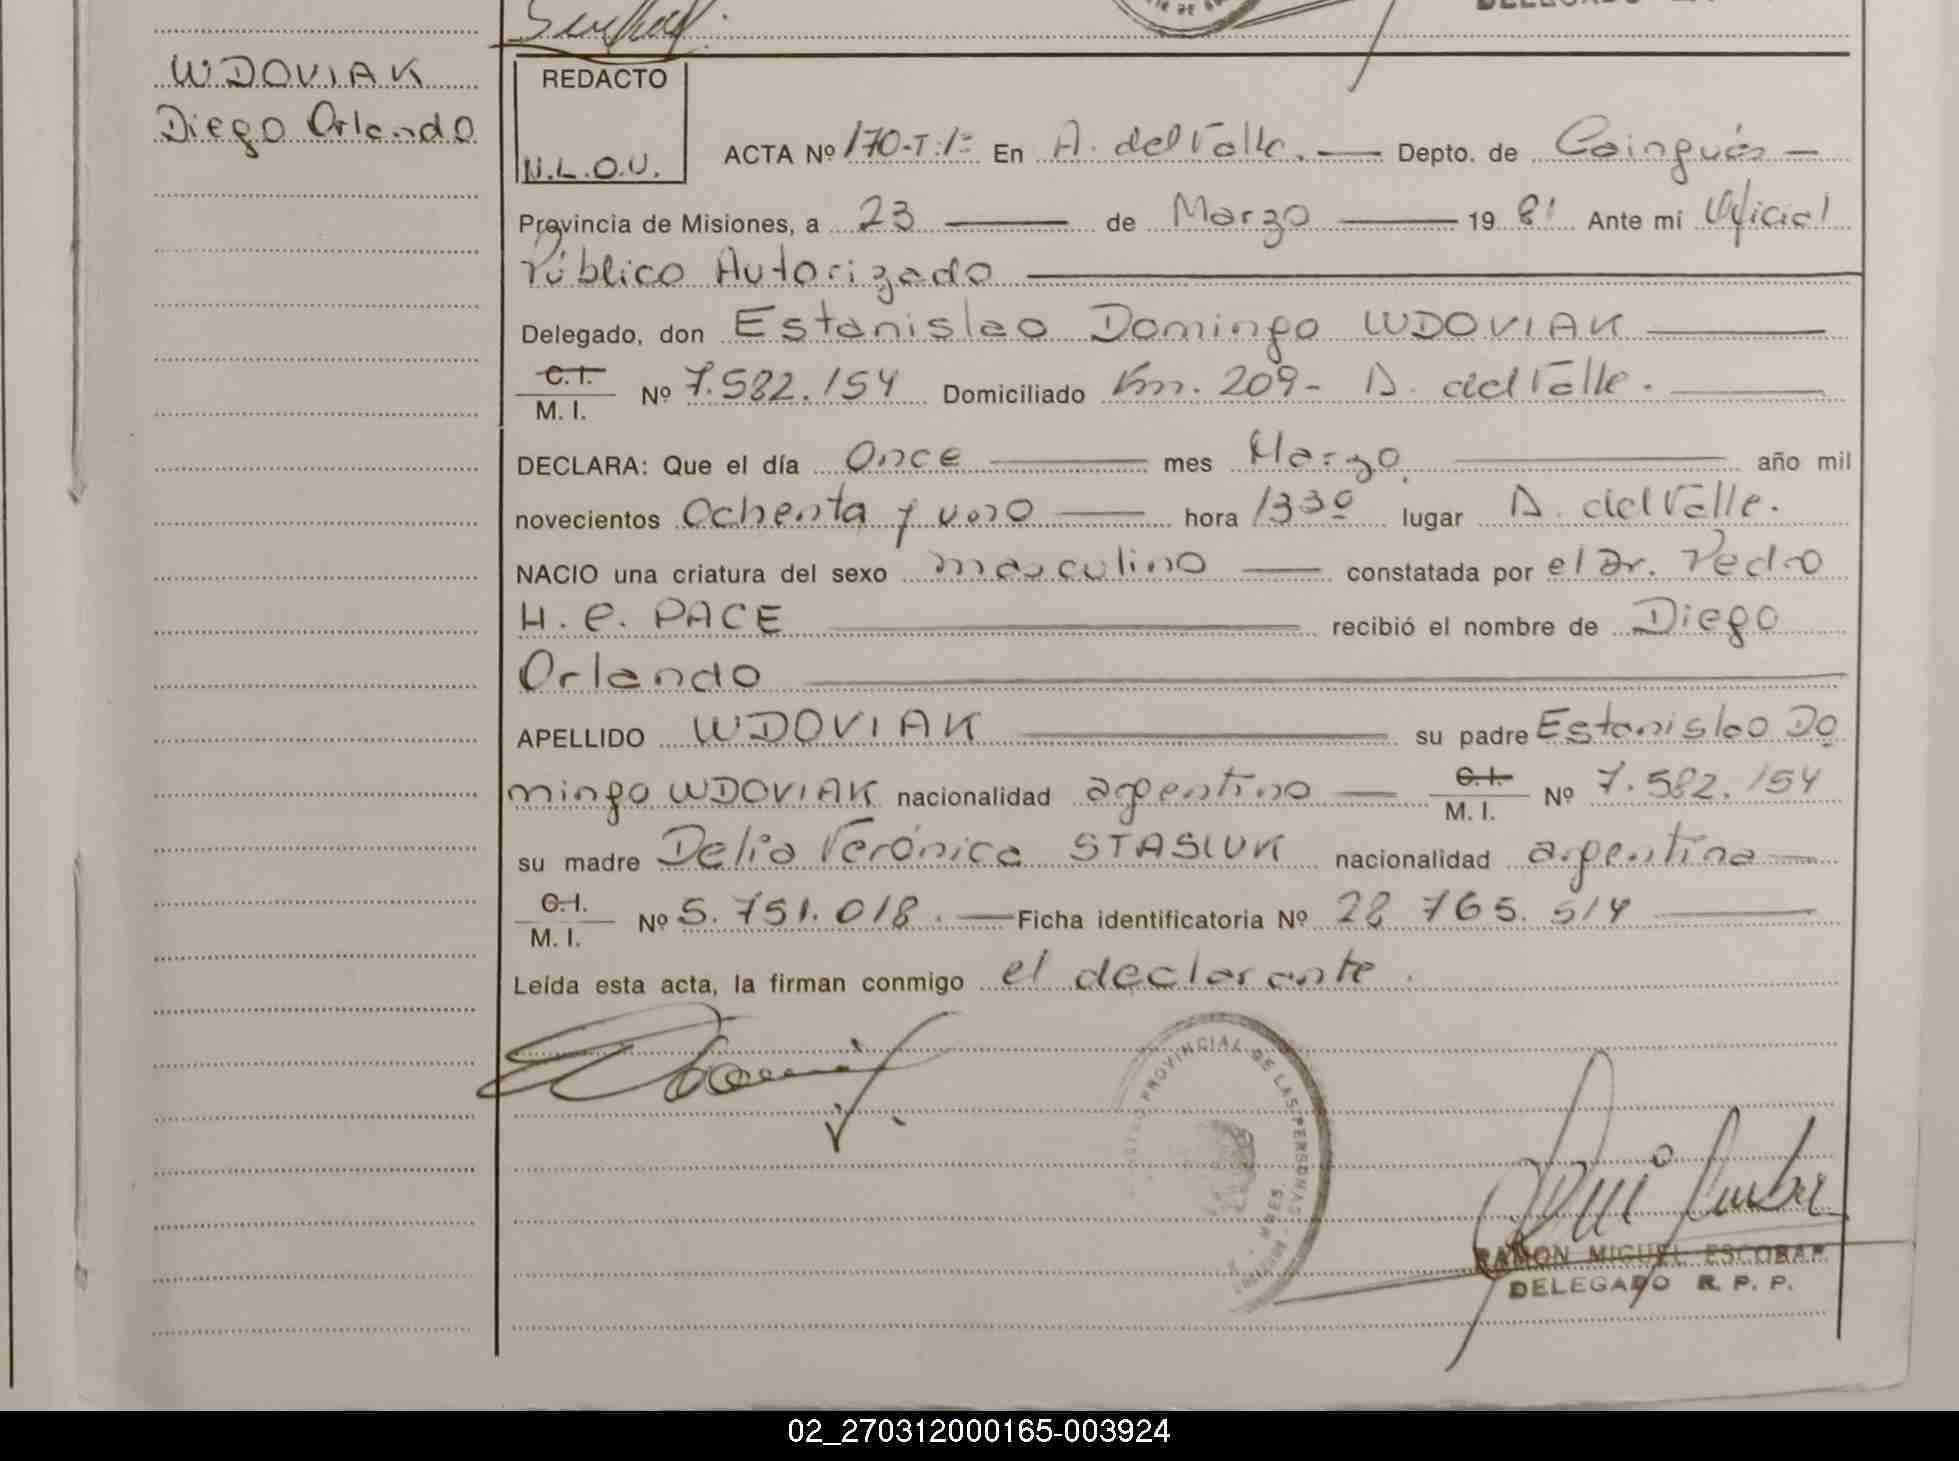 WDOVIAK
Diego Orlando
REDACTO
N.L.O.U.
ACTA Nº 170-T:1º En A. del Valle. Depto. de Cainguás
Provincia de Misiones, a 23 de Marzo 1981 Ante mí Oficial
Público Autorizado
Delegado, don Estanislao Domingo WDOVIAK
C. I.
M. I. Nº 7.582.154 Domiciliado Km. 209- A. del Valle.
DECLARA: Que el día Once mes Marzo. año mil
novecientos Ochenta y uno hora 1330 lugar A. del Valle.
NACIO una criatura del sexo masculino constatada por el Dr. Pedro
H. C. PACE recibió el nombre de Diego
Orlando
APELLIDO WDOVIAK su padre Estanislao Do
mingo WDOVIAK nacionalidad argentino C. I. M. I. Nº 7.582.154
su madre Delia Verónica STASIUK nacionalidad argentina
C. I.
M. I. Nº 5.751.018. Ficha identificatoria Nº 28 765.514
Leída esta acta, la firman conmigo el declarante.
PROVINCIAL DE LAS PERSONAS
RAMON MIGUEL ESCOBAR
DELEGADO R. P. P.
02_270312000165-003924